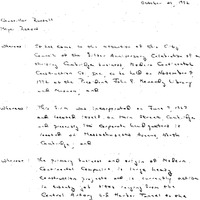 October 21, 1996
Councillor Russell
Mayor Russell
Whereas: It has come to the attention of this City
Council of the Fifty Anniversary Celebration of a
Cambridge business, Modern Continental
Construction Co., Inc. to be held on November 9
1996 at the President John F. Kennedy Library
and Museum; and
Whereas: This firm was incorporated on June 9, 1967
and located itself on Main Street Cambridge
and presently its corporate headquarters is
located on Massachusetts Avenue North
Cambridge; and
Whereas: The primary business and origin of Modern
Continental Companies is large heavy
Construction projects and is currently active
in twenty of sites ranging from the
Central Artery 3rd Harbor Tunnel to the